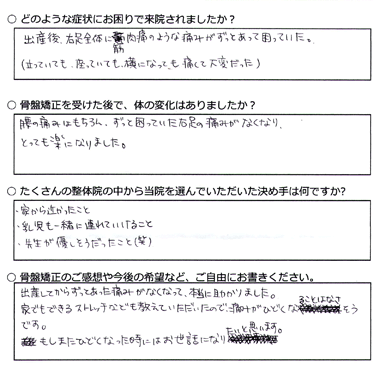 ○ どのような症状にお困りで来院されましたか？
出産後、右足全体に筋肉痛のような痛みがずっとあって困っていた。
(立っていても、座っていても、横になっても痛くて大変だった)
○ 骨盤矯正を受けた後で、体の変化はありましたか？
腰の痛みはもちろん、ずっと困っていた右足の痛みがなくなり、
とっても楽になりました。
○ たくさんの整体院の中から当院を選んでいただいた決め手は何ですか?
・家から近かったこと
・乳児も一緒に連れていけること
・先生が優しそうだったこと(笑)
○ 骨盤矯正のご感想や今後の希望など、ご自由にお書きください。
出産してからずっとあった痛みがなくなって、本当に助かりました。
家でもできるストレッチなども教えていただいたので、痛みがひどくなることはなさそう
です。
もしまたひどくなった時にはお世話になりたいと思います。